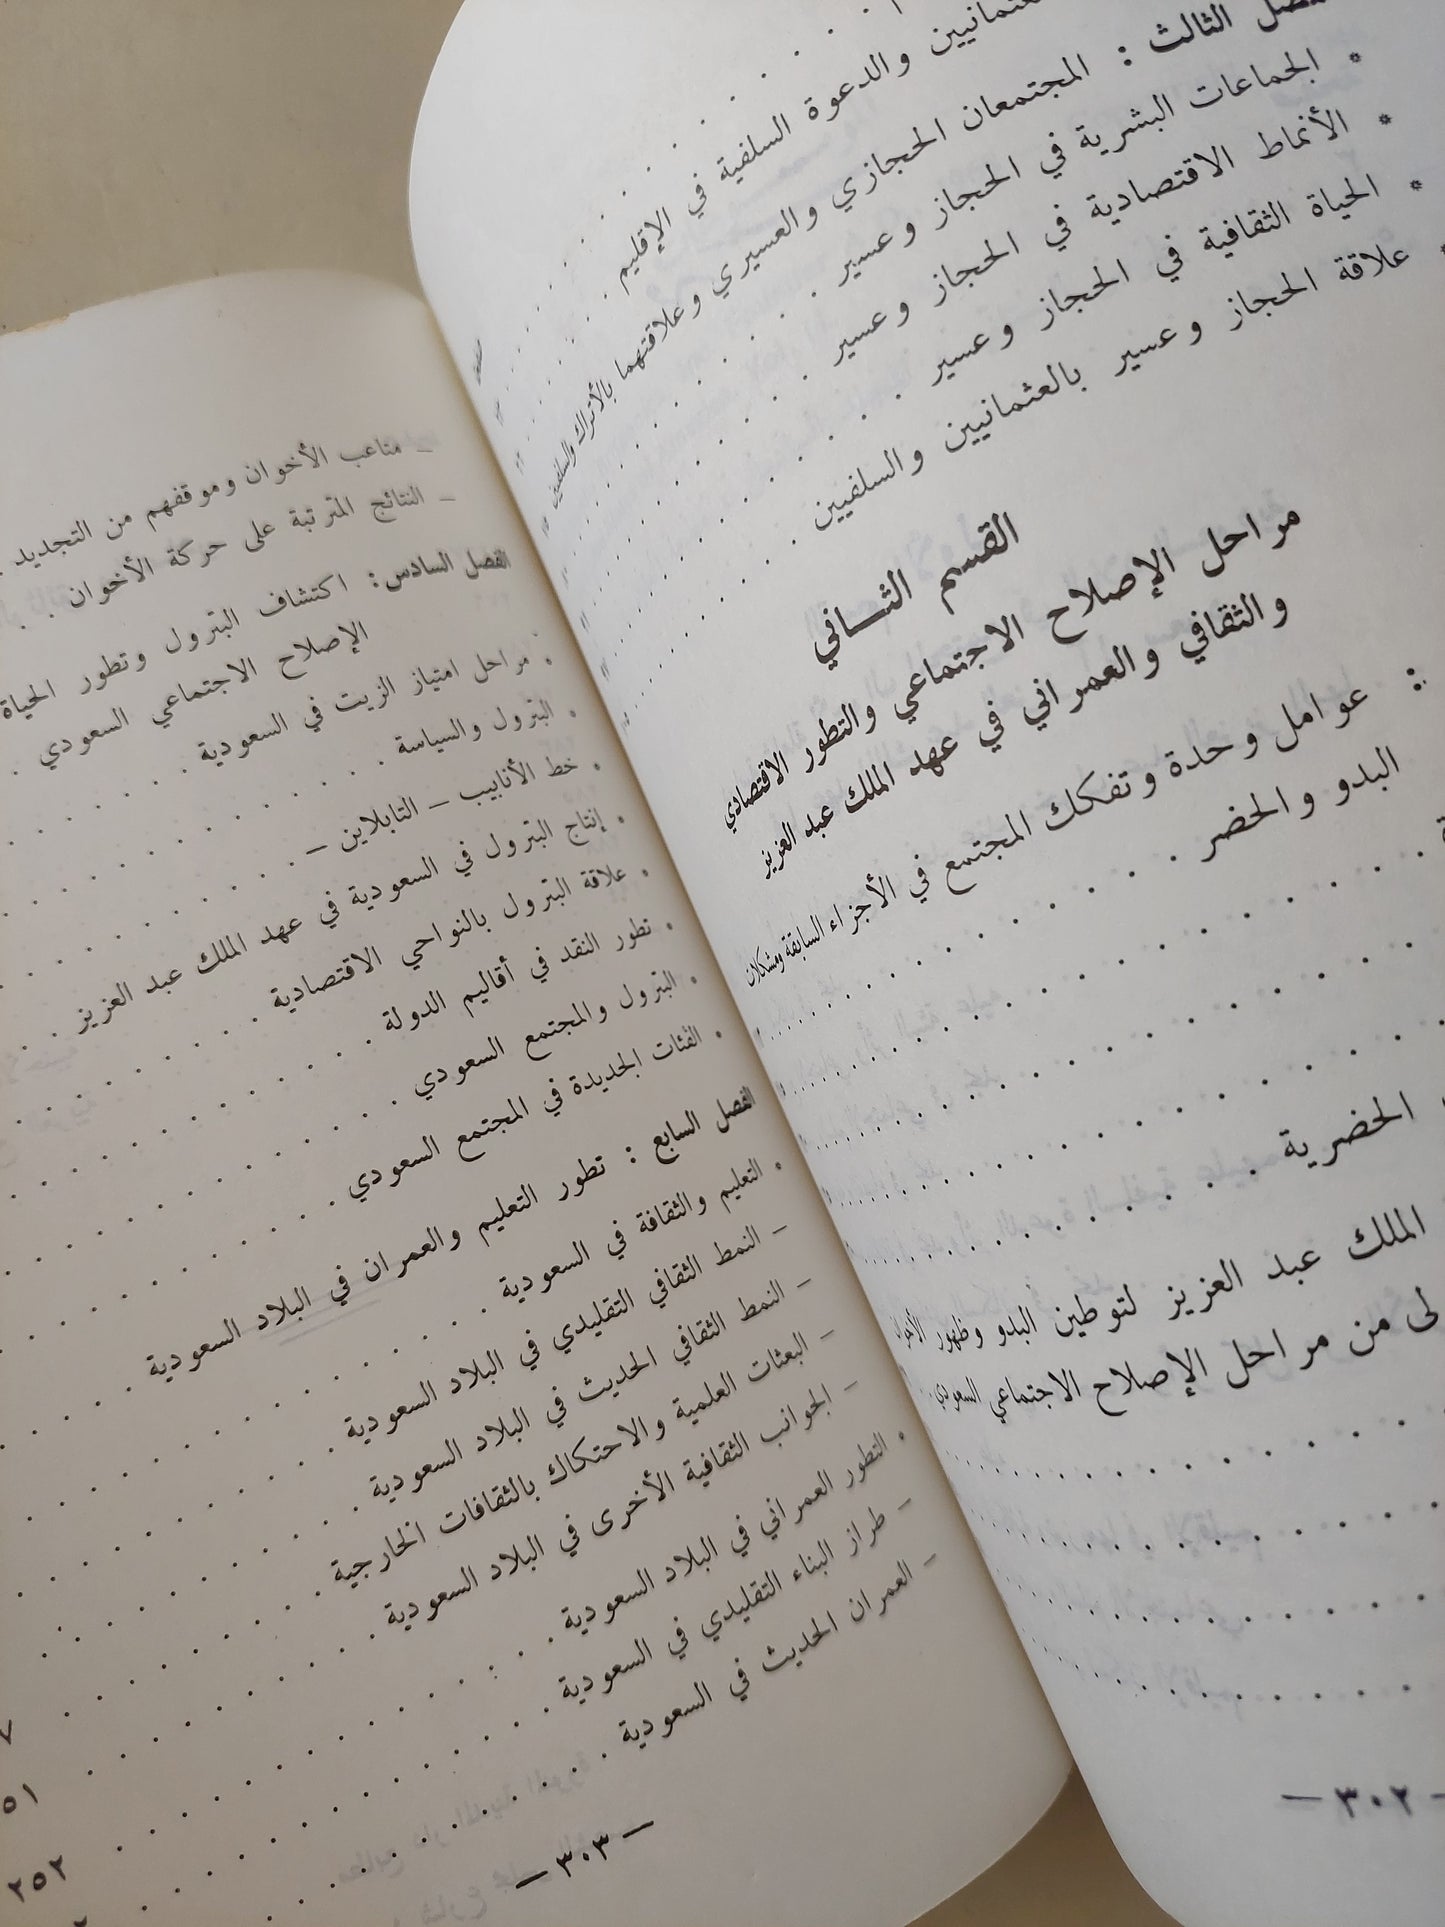 عثمانيين والدعوة السلفية في الإقليم
الثالث : المجتمعان الحجازي والعسيري وعلاقتهما بالأتراك والسلفيين
* الجماعات البشرية في الحجاز وعسير
* الأنماط الاقتصادية في الحجاز وعسير
* الحياة الثقافية في الحجاز وعسير
علاقة الحجاز وعسير بالعثمانيين والسلفيين
القسم الثاني
مراحل الإصلاح الاجتماعي والتطور الاقتصادي
والثقافي والعمراني في عهد الملك عبد العزيز
: عوامل وحدة وتفكك المجتمع في الأجزاء السابقة ومشكلات
البدو والحضر
الحضرية
الملك عبد العزيز لتوطين البدو وظهور
من مراحل الإصلاح الاجتماعي السعودي
— ٣٠٢ —
– متاعب الأخوان وموقفهم من التجديد
– النتائج المترتبة على حركة الأخوان
الفصل السادس : اكتشاف البترول وتطور الحياة
الإصلاح الاجتماعي السعودي
• مراحل امتياز الزيت في السعودية
• البترول والسياسة
• خط الأنابيب – التابلاين –
• إنتاج البترول في السعودية في عهد الملك عبد العزيز
• علاقة البترول بالنواحي الاقتصادية
• تطور النقد في أقاليم الدولة
• البترول والمجتمع السعودي
• الفئات الجديدة في المجتمع السعودي
الفصل السابع : تطور التعليم والعمران في البلاد السعودية
• التعليم والثقافة في السعودية
– النمط الثقافي التقليدي في البلاد السعودية
– النمط الثقافي الحديث في البلاد السعودية
– البعثات العلمية والاحتكاك بالثقافات الخارجية
– الجوانب الثقافية الأخرى في البلاد السعودية
• التطور العمراني في البلاد السعودية
– طراز البناء التقليدي في السعودية
– العمران الحديث في السعودية
٢٥٢
— ٣٠٣ —